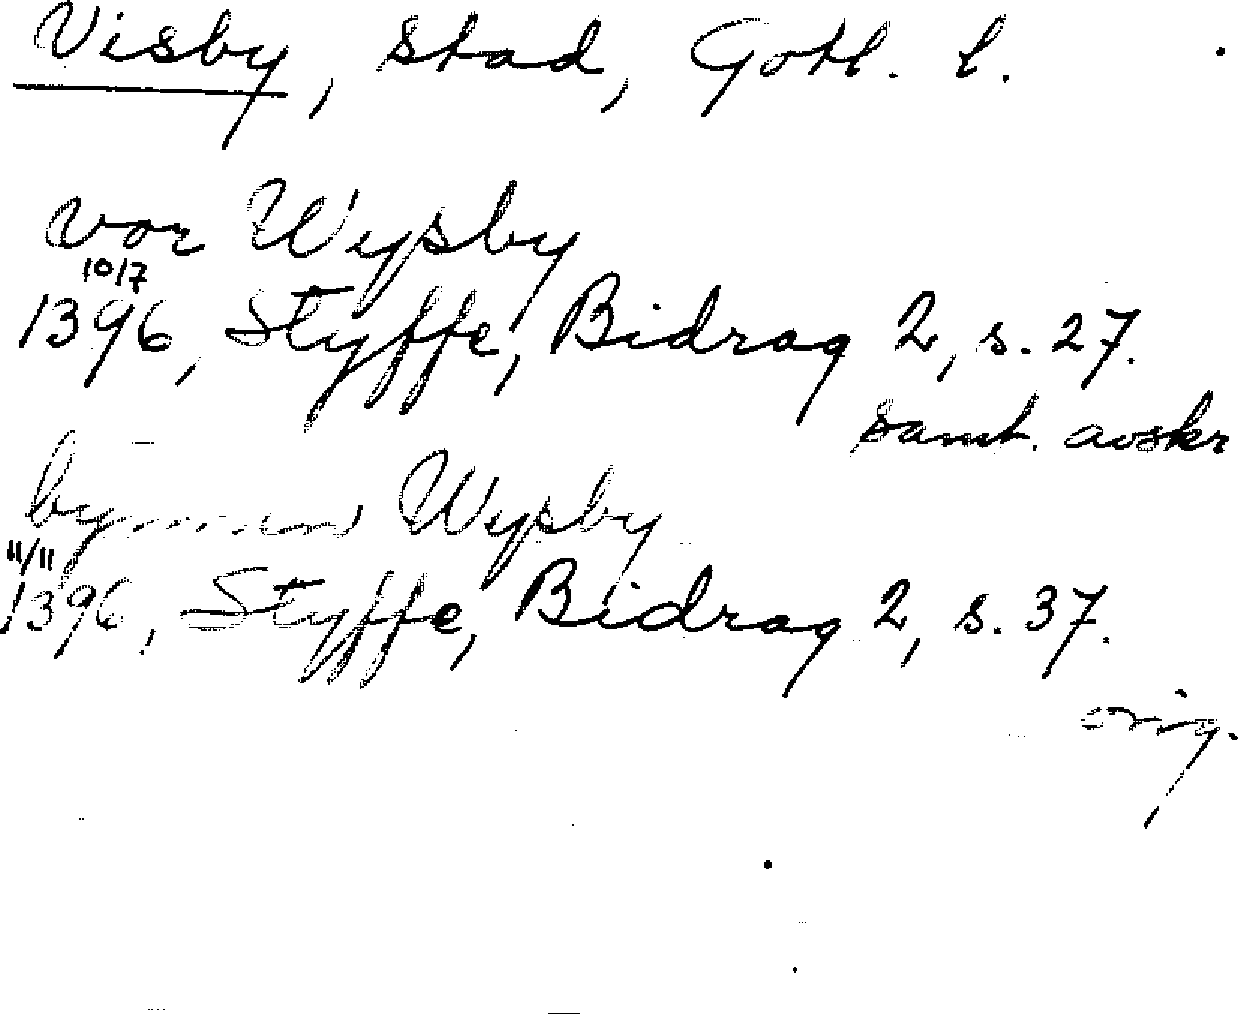 Visby, stad, Gotl. l.
vor Wysby
10/7
1396, Styffe, Bidrag 2, s. 27.
samt. avskr
bynnen Wysby
11/11
1396, Styffe, Bidrag 2, s. 37.
orig.